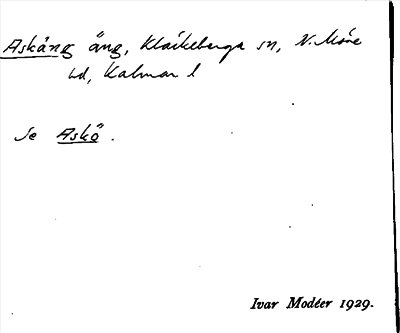 Askäng äng, Kläckeberga sn, N. Möre
hd, Kalmar l
Se Askö.
Ivar Modéer 1929.